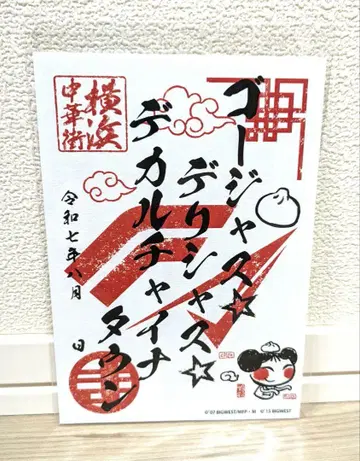 横浜
中華街
ゴージャス☆
デリシャス☆
デカルチャイナ
タウン
令和七年八月 日
©'07 BIGWEST/MFP・M ©'15 BIGWEST